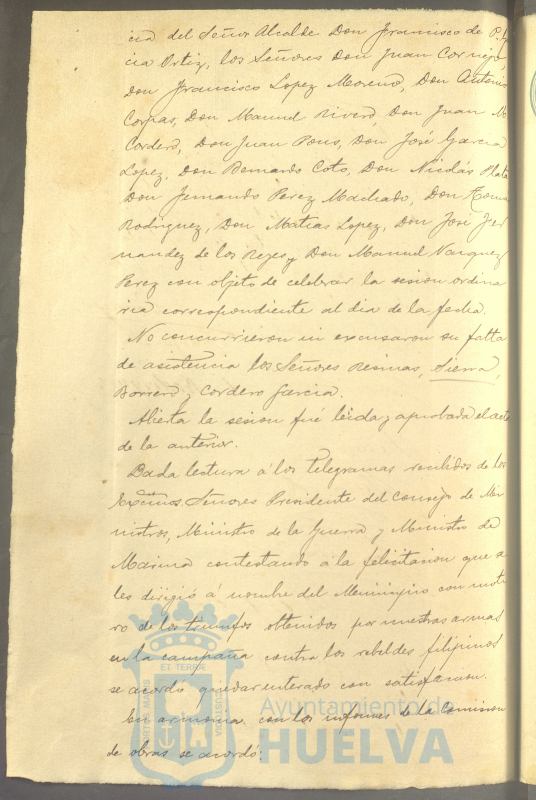 cia del Señor Alcalde Don Francisco de P. 
cia Ortiz, los Señores Don Juan Cornejo
Don Francisco Lopez Moreno, Don Antonio
Corpas, Don Manuel Rivero, Don Juan M.
Cordero, Don Juan Pons, Don José Garcia
Lopez, Don Bernardo Coto, Don Nicolás Plata
Don Fernando Perez Machado, Don Tomas
Rodriguez, Don Matias Lopez, Don José Fer
nandez de los Reyes y Don Manuel Vazquez
Perez con objeto de celebrar la sesion ordina
ria correspondiente al dia de la fecha.
No concurrieron ni excusaron su falta
de asistencia los Señores Resinas, Sierra,
Borrero y Cordero Garcia.
Abierta la sesion fué leida y aprobada el acta
de la anterior.
Dada lectura á los telegramas recibidos de los
Excmos. Señores Presidente del Consejo de Mi
nistros, Ministro de la Guerra y Ministro de
Marina contestando á la felicitacion que se
les dirigió á nombre del Municipio con moti
vo de los triunfos obtenidos por nuestras armas
en la campaña contra los rebeldes filipinos
se acordó quedar enterado con satisfaccion.
En armonia con los informes de la Comision
de obras se acordó:
PORTUS MARIS ET TERRE CUSTODIA
Ayuntamiento de
HUELVA